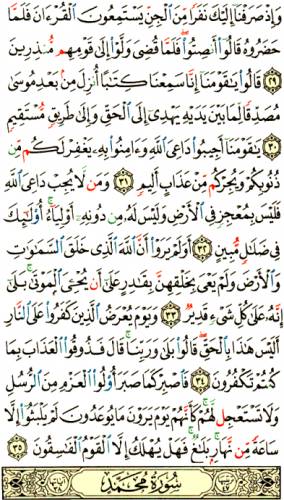 وَإِذْ صَرَفْنَا إِلَيْكَ نَفَرًا مِّنَ الْجِنِّ يَسْتَمِعُونَ الْقُرْءَانَ فَلَمَّا
حَضَرُوهُ قَالُوا أَنصِتُوا فَلَمَّا قُضِىَ وَلَّوْا إِلَىٰ قَوْمِهِم مُّنذِرِينَ
٢٩ قَالُوا يَٰقَوْمَنَا إِنَّا سَمِعْنَا كِتَٰبًا أُنزِلَ مِنۢ بَعْدِ مُوسَىٰ
مُصَدِّقًا لِّمَا بَيْنَ يَدَيْهِ يَهْدِىٓ إِلَى الْحَقِّ وَإِلَىٰ طَرِيقٍ مُّسْتَقِيمٍ
٣٠ يَٰقَوْمَنَآ أَجِيبُوا دَاعِىَ اللَّهِ وَءَامِنُوا بِهِۦ يَغْفِرْ لَكُم مِّن
ذُنُوبِكُمْ وَيُجِرْكُم مِّنْ عَذَابٍ أَلِيمٍ ٣١ وَمَن لَّا يُجِبْ دَاعِىَ اللَّهِ
فَلَيْسَ بِمُعْجِزٍ فِى الْأَرْضِ وَلَيْسَ لَهُۥ مِن دُونِهِۦٓ أَوْلِيَآءُ ۚ أُولَٰٓئِكَ
فِى ضَلَٰلٍ مُّبِينٍ ٣٢ أَوَلَمْ يَرَوْا أَنَّ اللَّهَ الَّذِى خَلَقَ السَّمَٰوَٰتِ
وَالْأَرْضَ وَلَمْ يَعْىَ بِخَلْقِهِنَّ بِقَٰدِرٍ عَلَىٰٓ أَن يُحْۦِىَ الْمَوْتَىٰ ۚ بَلَىٰٓ
إِنَّهُۥ عَلَىٰ كُلِّ شَىْءٍ قَدِيرٌ ٣٣ وَيَوْمَ يُعْرَضُ الَّذِينَ كَفَرُوا عَلَى النَّارِ
أَلَيْسَ هَٰذَا بِالْحَقِّ ۖ قَالُوا بَلَىٰ وَرَبِّنَا ۚ قَالَ فَذُوقُوا الْعَذَابَ بِمَا
كُنتُمْ تَكْفُرُونَ ٣٤ فَاصْبِرْ كَمَا صَبَرَ أُولُوا الْعَزْمِ مِنَ الرُّسُلِ
وَلَا تَسْتَعْجِل لَّهُمْ ۚ كَأَنَّهُمْ يَوْمَ يَرَوْنَ مَا يُوعَدُونَ لَمْ يَلْبَثُوٓا إِلَّا
سَاعَةً مِّن نَّهَارٍۭ ۚ بَلَٰغٌ ۚ فَهَلْ يُهْلَكُ إِلَّا الْقَوْمُ الْفَٰسِقُونَ ٣٥
سُورَةُ مُحَمَّد